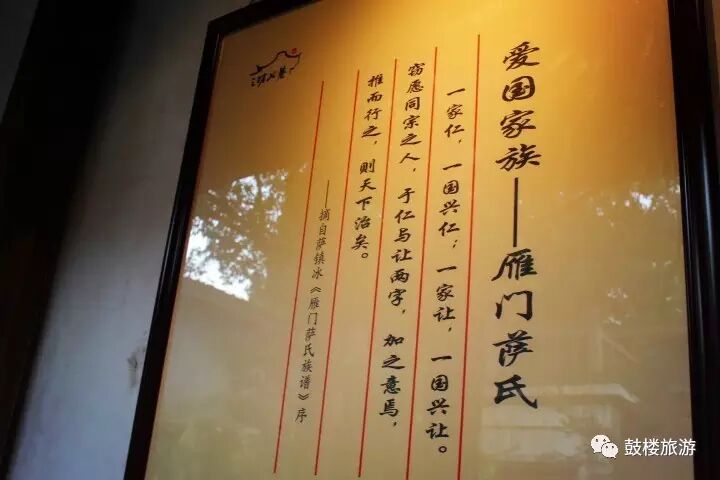 爱国家族——雁门萨氏
一家仁，一国兴仁；一家让，一国兴让。
窃愿同宗之人，于仁与让两字，加之意焉，
推而行之，则天下治矣。
——摘自萨镇冰《雁门萨氏族谱》序
鼓楼旅游